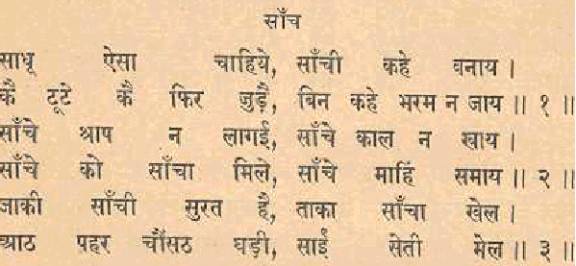 साँच
साधू ऐसा चाहिये, साँची कहे बनाय ।
कै टूटे कै फिर जुड़ै, बिन कहे भरम न जाय ॥ १ ॥
साँचे श्राप न लागई, साँचे काल न खाय ।
साँचे को साँचा मिले, साँचे माहिं समाय ॥ २ ॥
जाकी साँची सुरत है, ताका साँचा खेल ।
आठ पहर चौंसठ घड़ी, साईं सेती मेल ॥ ३ ॥